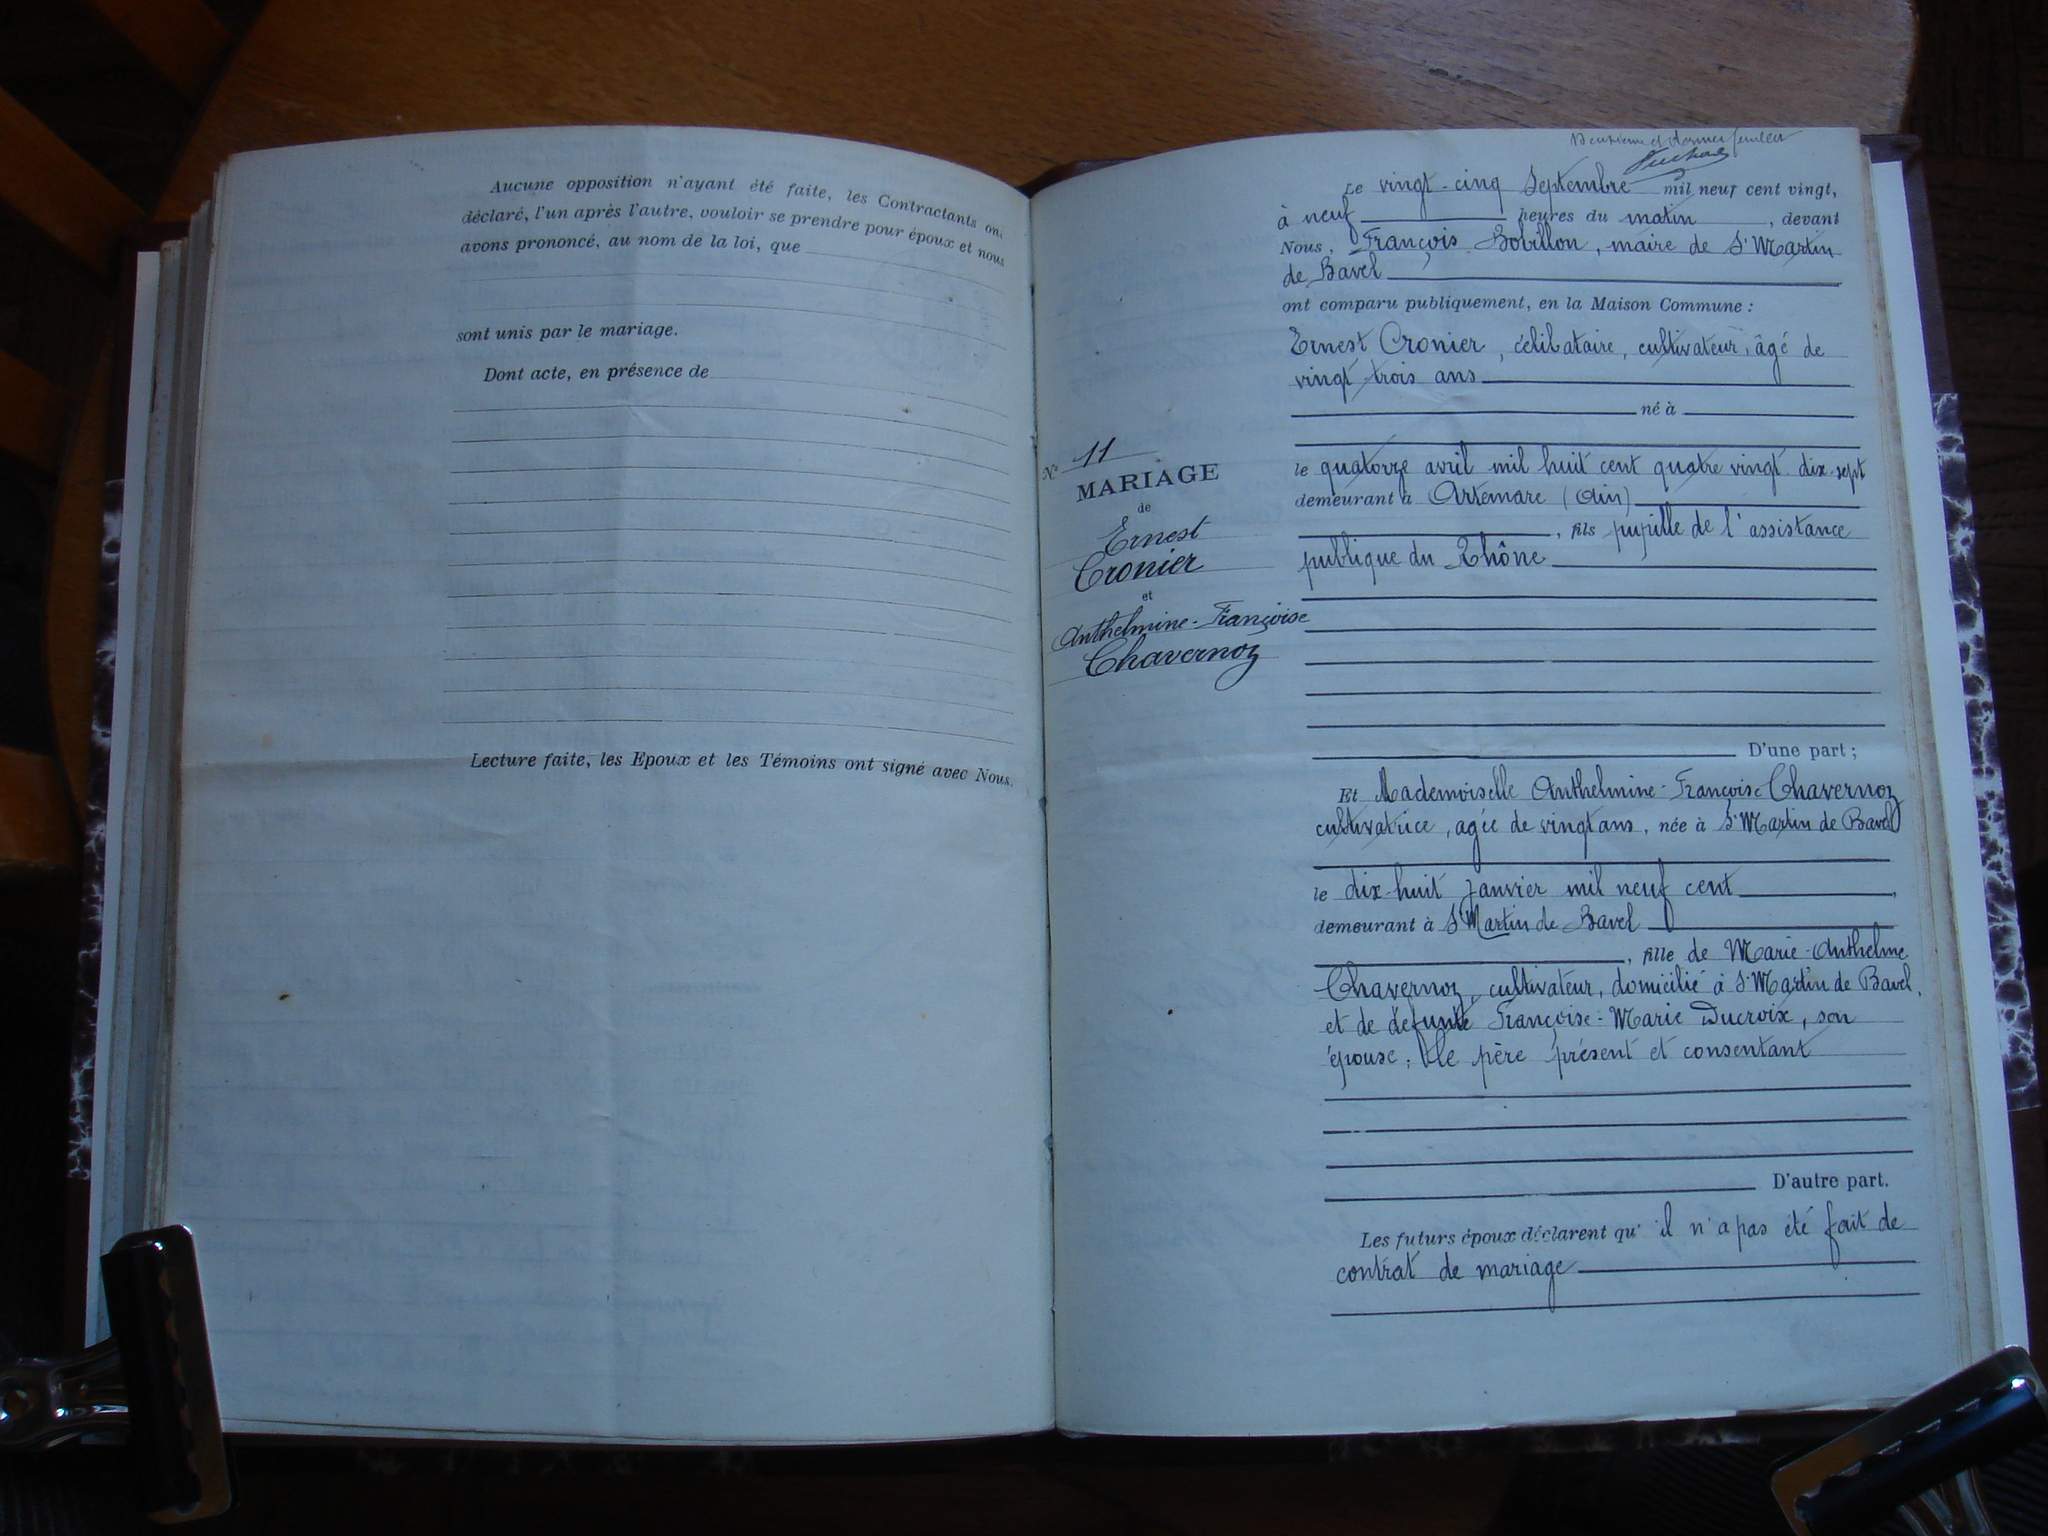 Aucune opposition n'ayant été faite, les Contractants on
déclaré, l'un après l'autre, vouloir se prendre pour époux et nous
avons prononcé, au nom de la loi, que
sont unis par le mariage.
Dont acte, en présence de
Lecture faite, les Epoux et les Témoins ont signé avec Nous.
N° 11
MARIAGE
de
Ernest
Cronier
et
Anthelmine-Françoise
Chavernoz
Le vingt-cinq Septembre mil neuf cent vingt,
à neuf heures du matin, devant
Nous, François Bobillon, maire de St Martin
de Bavel
ont comparu publiquement, en la Maison Commune :
Ernest Cronier, célibataire, cultivateur, âgé de
vingt trois ans
né à
le quatorze avril mil huit cent quatre vingt dix-sept
demeurant à Artemare (Ain)
, fils pupille de l'assistance
publique du Rhône
D'une part ;
Et Mademoiselle Anthelmine-Françoise Chavernoz
cultivatrice, agée de vingt ans, née à St Martin de Bavel
le dix-huit janvier mil neuf cent,
demeurant à St Martin de Bavel
, fille de Marie-Anthelme
Chavernoz, cultivateur, domicilié à St Martin de Bavel,
et de défunte Françoise-Marie Ducroix, son
épouse ; le père présent et consentant
D'autre part.
Les futurs époux déclarent qu'il n'a pas été fait de
contrat de mariage